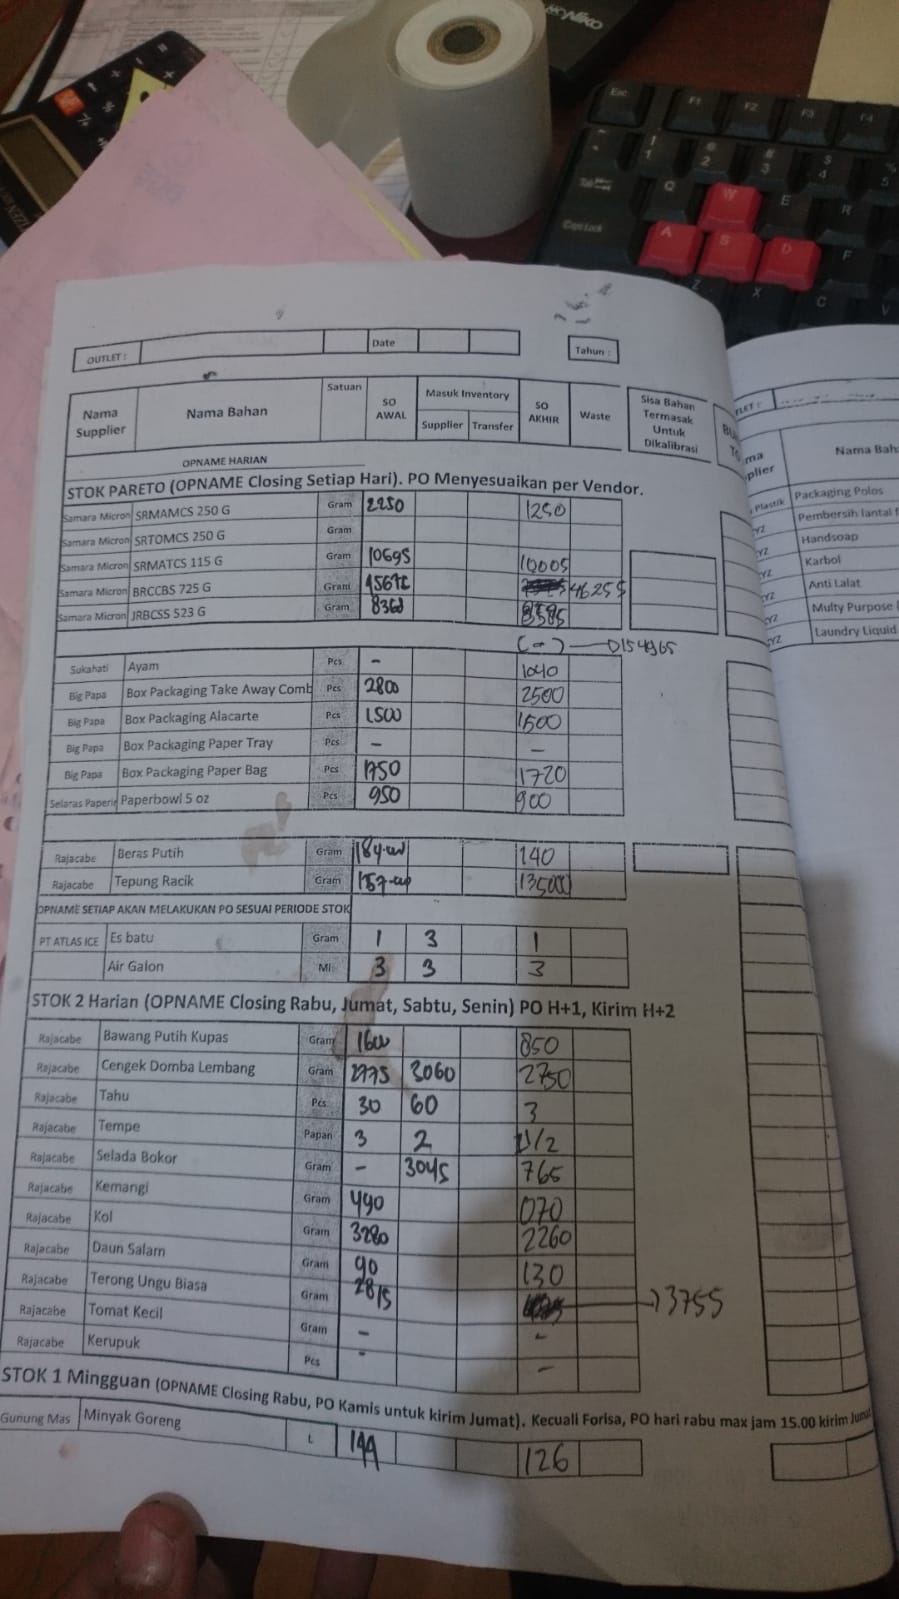 OUTLET : Date Tahun :
Nama Supplier Nama Bahan Satuan SO AWAL Masuk Inventory Supplier Transfer SO AKHIR Waste Sisa Bahan Termasak Untuk Dikalibrasi
OPNAME HARIAN
STOK PARETO (OPNAME Closing Setiap Hari). PO Menyesuaikan per Vendor.
Samara Micron SRMAMCS 250 G Gram 2250 1250
Samara Micron SRTOMCS 250 G Gram
Samara Micron SRMATCS 115 G Gram 10695 10005
Samara Micron BRCCBS 725 G Gram 46255
Samara Micron JRBCSS 523 G Gram
Sukahati Ayam Pcs - 1040
Big Papa Box Packaging Take Away Comb Pcs 2800 2500
Big Papa Box Packaging Alacarte Pcs 1500 1500
Big Papa Box Packaging Paper Tray Pcs - -
Big Papa Box Packaging Paper Bag Pcs 1750 1720
Selaras Paperin Paperbowl 5 oz Pcs 950 900
Rajacabe Beras Putih Gram 140
Rajacabe Tepung Racik Gram
OPNAME SETIAP AKAN MELAKUKAN PO SESUAI PERIODE STOK
PT ATLAS ICE Es batu Gram 1 3 1
Air Galon Ml 3 3 3
STOK 2 Harian (OPNAME Closing Rabu, Jumat, Sabtu, Senin) PO H+1, Kirim H+2
Rajacabe Bawang Putih Kupas Gram 1600 850
Rajacabe Cengek Domba Lembang Gram 2775 3060 2750
Rajacabe Tahu Pcs 30 60 3
Rajacabe Tempe Papan 3 2
Rajacabe Selada Bokor Gram - 3045 765
Rajacabe Kemangi Gram 490 070
Rajacabe Kol Gram 3280 2260
Rajacabe Daun Salam Gram 90 130
Rajacabe Terong Ungu Biasa Gram 2815 3755
Rajacabe Tomat Kecil Gram - -
Rajacabe Kerupuk Pcs - -
STOK 1 Mingguan (OPNAME Closing Rabu, PO Kamis untuk kirim Jumat). Kecuali Forisa, PO hari rabu max jam 15.00 kirim Jumat
Gunung Mas Minyak Goreng L 144 126
Nama Bah
Packaging Polos
Pembersih lantai
Handsoap
Karbol
Anti Lalat
Multy Purpose
Laundry Liquid
Esc F1 F2 F3 F4
Q W E R
Caps Lock A S D F
Z X C V